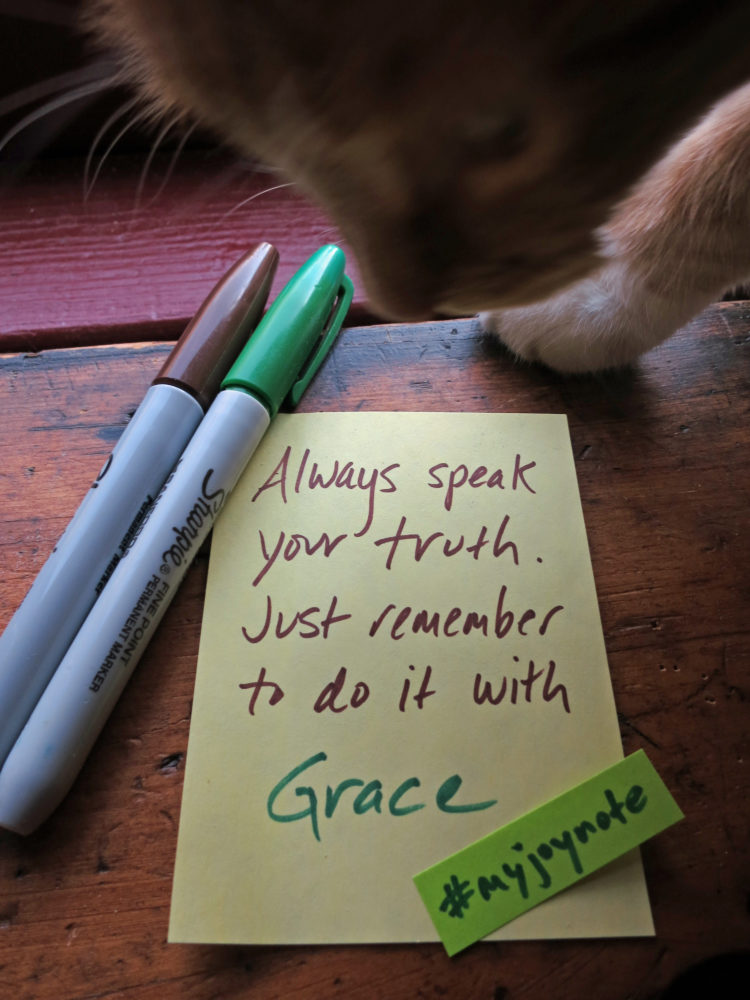 Always speak
your truth.
Just remember
to do it with
Grace
#myjoynote
Sharpie®
FINE POINT
PERMANENT MARKER
Permanent Marker